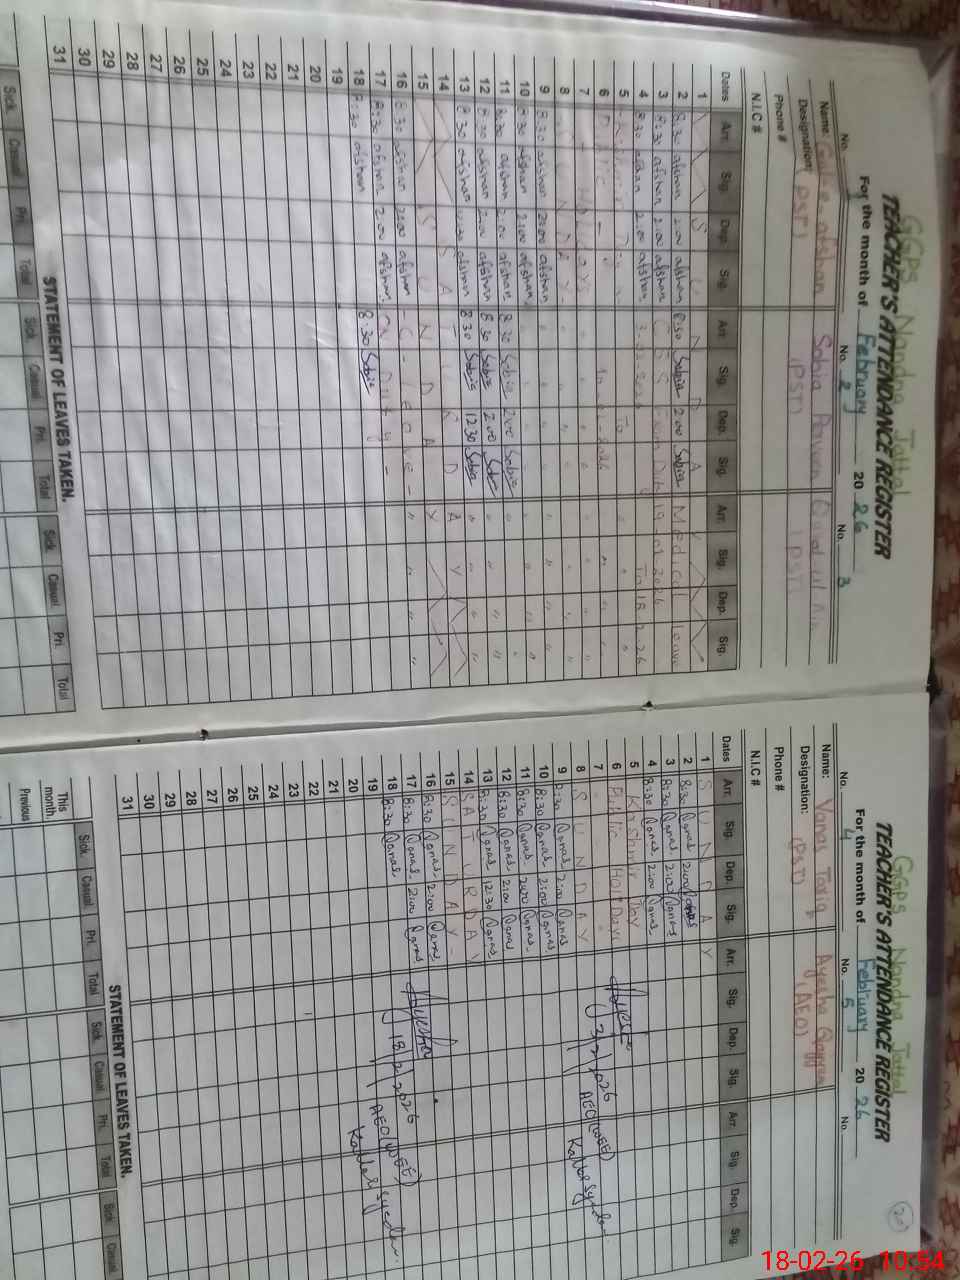 GGPS Nandna Jattal
TEACHER'S ATTENDANCE REGISTER
For the month of February 2026
No. 1 No. 2 No. 3
Name: Gul-e-afshan Sobia Parveen Qurat ul Ain
Designation: (PST) (PST) (PST)
Phone #
N.I.C #
Dates Arr. Sig. Dep. Sig. Arr. Sig. Dep. Sig. Arr. Sig. Dep. Sig.
1 S U N D A Y
2 8:30 afshan 2:00 afshan 8:30 Sobia 2:00 Sobia Medical leave
3 8:30 afshan 2:00 afshan Exam Duty 19 01 2026
4 8:30 afshan 2:00 afshan 3-02-2026 To 18 2 26
5 Kashmir Day " To "
6 Public - 2026 "
7 Holidays " "
8 S U N D A Y - " "
9 8:30 afshan 2:00 afshan " "
10 8:30 afshan 2:00 afshan " "
11 8:30 afshan 2:00 afshan 8:30 Sobia 2:00 Sobia " "
12 8:30 afshan 2:00 afshan 8:30 Sobia 2:00 Sobia " "
13 8:30 afshan 12:30 afshan 8:30 Sobia 12:30 Sobia " "
14 S A T U R D A Y
15 S U N D A Y
16 8:30 afshan 2:00 afshan - C - leave - " "
17 8:30 afshan 2:00 afshan ON Duty -
18 8:30 afshan 8:30 Sobia
19
20
21
22
23
24
25
26
27
28
29
30
31
STATEMENT OF LEAVES TAKEN.
Sick. Casual Pri. Total Sick. Casual Pri. Total Sick Casual Pri. Total
GGPS Nandna Jattal
20
TEACHER'S ATTENDANCE REGISTER
For the month of February 2026
No. 4 No. 5 No.
Name: Tariq Ayesha Qayyum
Designation: (PST) (AEO)
Phone #
N.I.C #
Dates Arr. Sig. Dep. Sig. Arr. Sig. Dep. Sig. Arr. Sig. Dep. Sig.
1 S U N D A Y
2 8:30 Qanas 2:00 Qanas
3 8:30 Qanas 2:00 Qanas
4 8:30 Qanas 2:00 Qanas
5 Kashmir Day
6 Public Holidays
7
8 S U N D A Y
9 8:30 Qanas 2:00 Qanas
10 8:30 Qanas 2:00 Qanas
11 8:30 Qanas 2:00 Qanas
12 8:30 Qanas 2:00 Qanas
13 8:30 Qanas 12:30 Qanas
14 S A T U R D A Y
15 S U N D A Y -
16 8:30 Qanas 2:00 Qanas
17 8:30 Qanas 2:00 Qanas
18 8:30 Qanas
19
20
21
22
23
24
25
26
27
28
29
30
31
Ayesha
3/2/2026
AEO(WEE)
Kallar Syedan
Ayesha
18/2/2026
AEO(WEE)
Kallar Syedan
STATEMENT OF LEAVES TAKEN.
Sick. Casual Pri. Total Sick. Casual Pri. Total Sick Casual
This month.
Previous
18-02-26 10:54